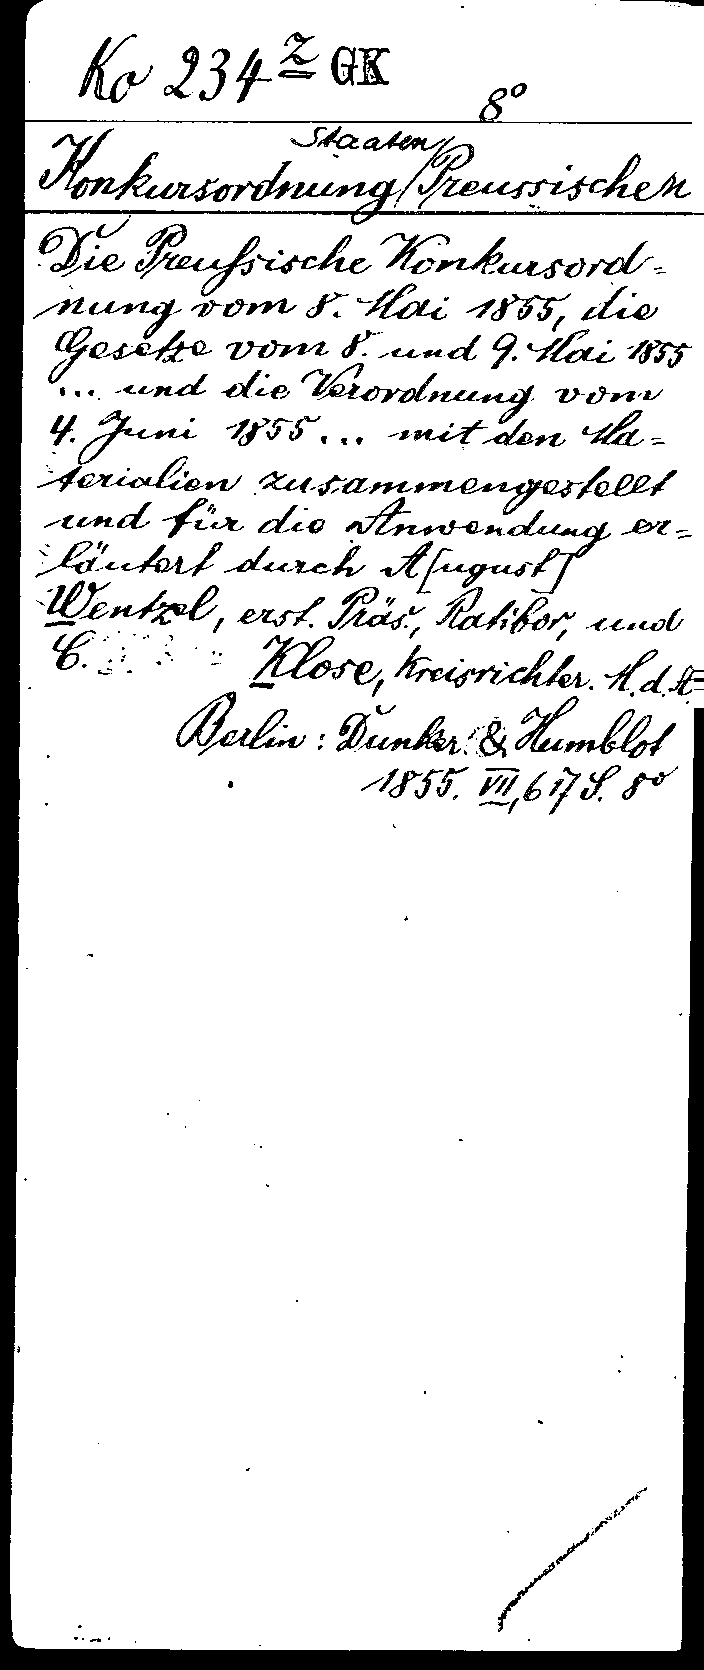 Ko 234 z GK
8°
Staaten
Konkursordnung / Preussischen
Die Preußische Konkursord-
nung vom 8. Mai 1855, die
Gesetze vom 8. und 9. Mai 1855
... und die Verordnung vom
4. Juni 1855 ... mit den Ma-
terialien zusammengestellt
und für die Anwendung er-
läutert durch A[ugust]
Wentzel, erst. Präs., Ratibor, und
C. Klose, Kreisrichter. M. d. A
Berlin: Dunker & Humblot
1855. VII, 617 S. 8°